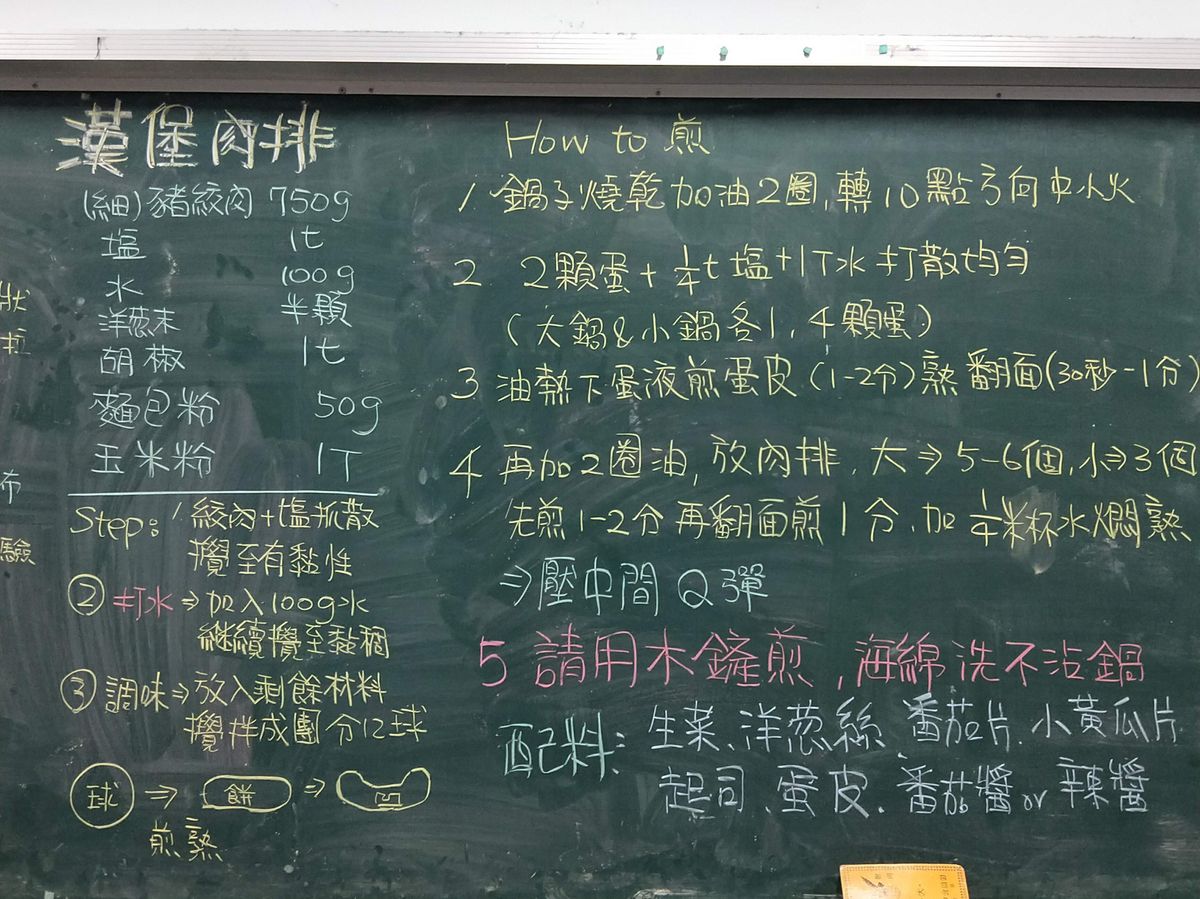 漢堡肉排
(細)豬絞肉 750g
塩 1t
水 100g
洋葱末 半顆
胡椒 1t
麵包粉 50g
玉米粉 1T
Step: 1 絞肉+塩抓散
攪至有黏性
② 打水⇒加入100g水
繼續攪至黏稠
③ 調味⇒放入剩餘材料
攪拌成團分12球
球 ⇒ 餅 ⇒ 凹
煎熟
How to 煎
1 鍋子燒乾加油2圈,轉10點方向中小火
2 2顆蛋+1/4t塩+1T水打散均勻
(大鍋&小鍋各1,4顆蛋)
3 油熱下蛋液煎蛋皮(1-2分)熟翻面(30秒-1分)
4 再加2圈油,放肉排,大⇒5-6個,小⇒3個
先煎1-2分再翻面煎1分,加1/4米杯水燜熟
⇒壓中間Q彈
5 請用木鏟煎,海綿洗不沾鍋
配料: 生菜、洋葱絲、番茄片、小黃瓜片
起司、蛋皮、番茄醬or辣醬
狀
粒
布
驗